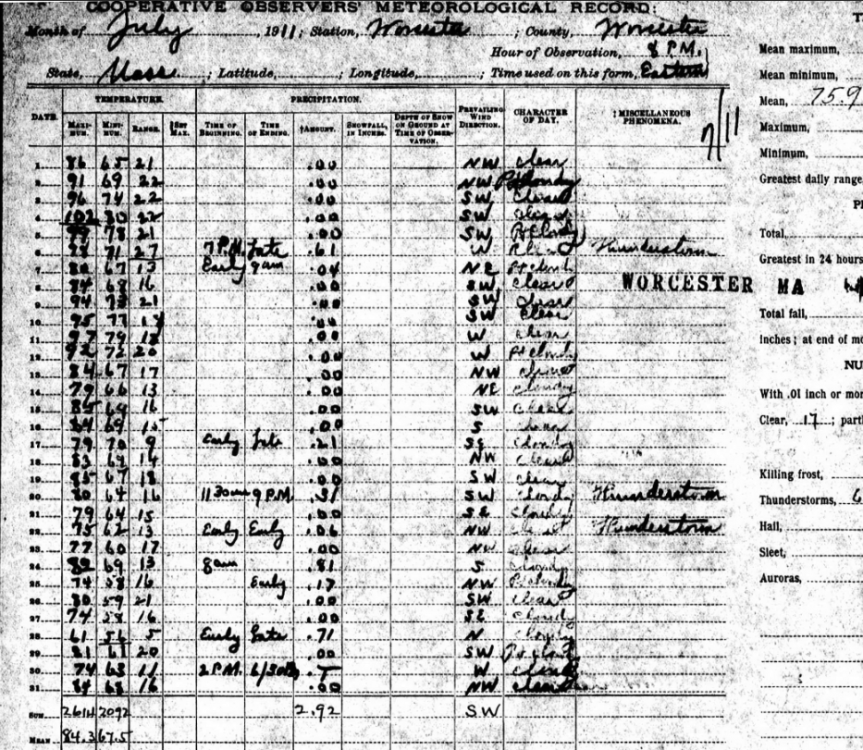 COOPERATIVE OBSERVERS' METEOROLOGICAL RECORD:
Month of July, 1911; Station, Worcester; County, Worcester
Hour of Observation, 8 P.M.
State, Mass; Latitude,; Longitude,; Time used on this form, Eastern
DATE. TEMPERATURE. PRECIPITATION. PREVAILING WIND DIRECTION. CHARACTER OF DAY. MISCELLANEOUS PHENOMENA. 7/11
MAXIMUM. MINIMUM. RANGE. SET MAX. TIME OF BEGINNING. TIME OF ENDING. AMOUNT. SNOWFALL IN INCHES. DEPTH OF SNOW ON GROUND AT TIME OF OBSERVATION.
1 86 65 21 .00 NW Clear
2 91 69 22 .00 NW Pt Cloudy
3 96 74 22 .00 SW Clear
4 102 80 22 .00 SW
5 99 78 21 .00 SW Pt Cloudy
6 71 27 7 P.M. Late .61 W Thunderstorm
7 80 67 13 Early 9am .04 NE Pt Cloudy
8 84 68 16 .00 SW Clear
9 94 73 21 .00 SW Clear
10 95 77 SW Clear
11 97 79 18 .00 W Clear
12 92 72 20 .00 W Pt Cloudy
13 84 67 17 .00 NW
14 79 66 13 .00 NE Cloudy
15 85 69 16 .00 SW Clear
16 84 69 15 .00 S
17 79 70 9 Early Late .21 SE Cloudy
18 83 69 14 .00 NW Clear
19 85 67 18 .00 SW Clear
20 80 64 16 11 30am 9 P.M. .31 SW Cloudy Thunderstorm
21 79 64 15 .00 SE Cloudy
22 75 62 13 Early Early .06 NW Thunderstorm
23 77 60 17 .00 NW Clear
24 82 69 13 8am .81 S Cloudy
25 74 58 16 Early .17 NW Pt Cloudy
26 80 59 21 .00 SW Clear
27 74 58 16 .00 SE Cloudy
28 61 56 5 Early Late .71 N Cloudy
29 81 61 20 .00 SW Pt Cloudy
30 74 63 11 2 P.M. .T W
31 84 68 16 .00 NW Clear
SUM 2614 2092 2.92 SW
MEAN 84.3 67.5
WORCESTER MA
Mean maximum,
Mean minimum,
Mean, 75.9
Maximum,
Minimum,
Greatest daily range
Total,
Greatest in 24 hours
Total fall,
Inches; at end of mo
NU
With .01 inch or mor
Clear, 17; part
Killing frost,
Thunderstorms, 6
Hail,
Sleet,
Auroras,